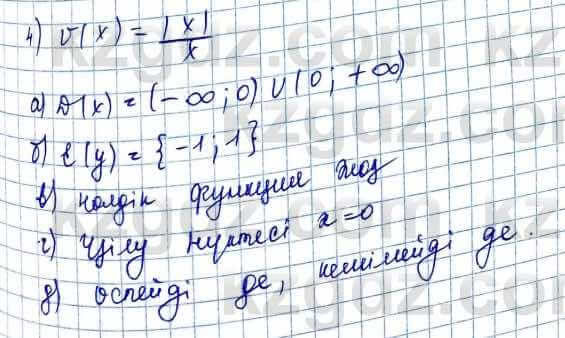 4) v(x) = |x|/x
а) D(x) = (-∞; 0) ∪ (0; +∞)
б) E(y) = {-1; 1}
в) нөлдік функция жоқ
г) үзілу нүктесі x=0
д) өспейді де, кемімейді де.
kzgdz.com